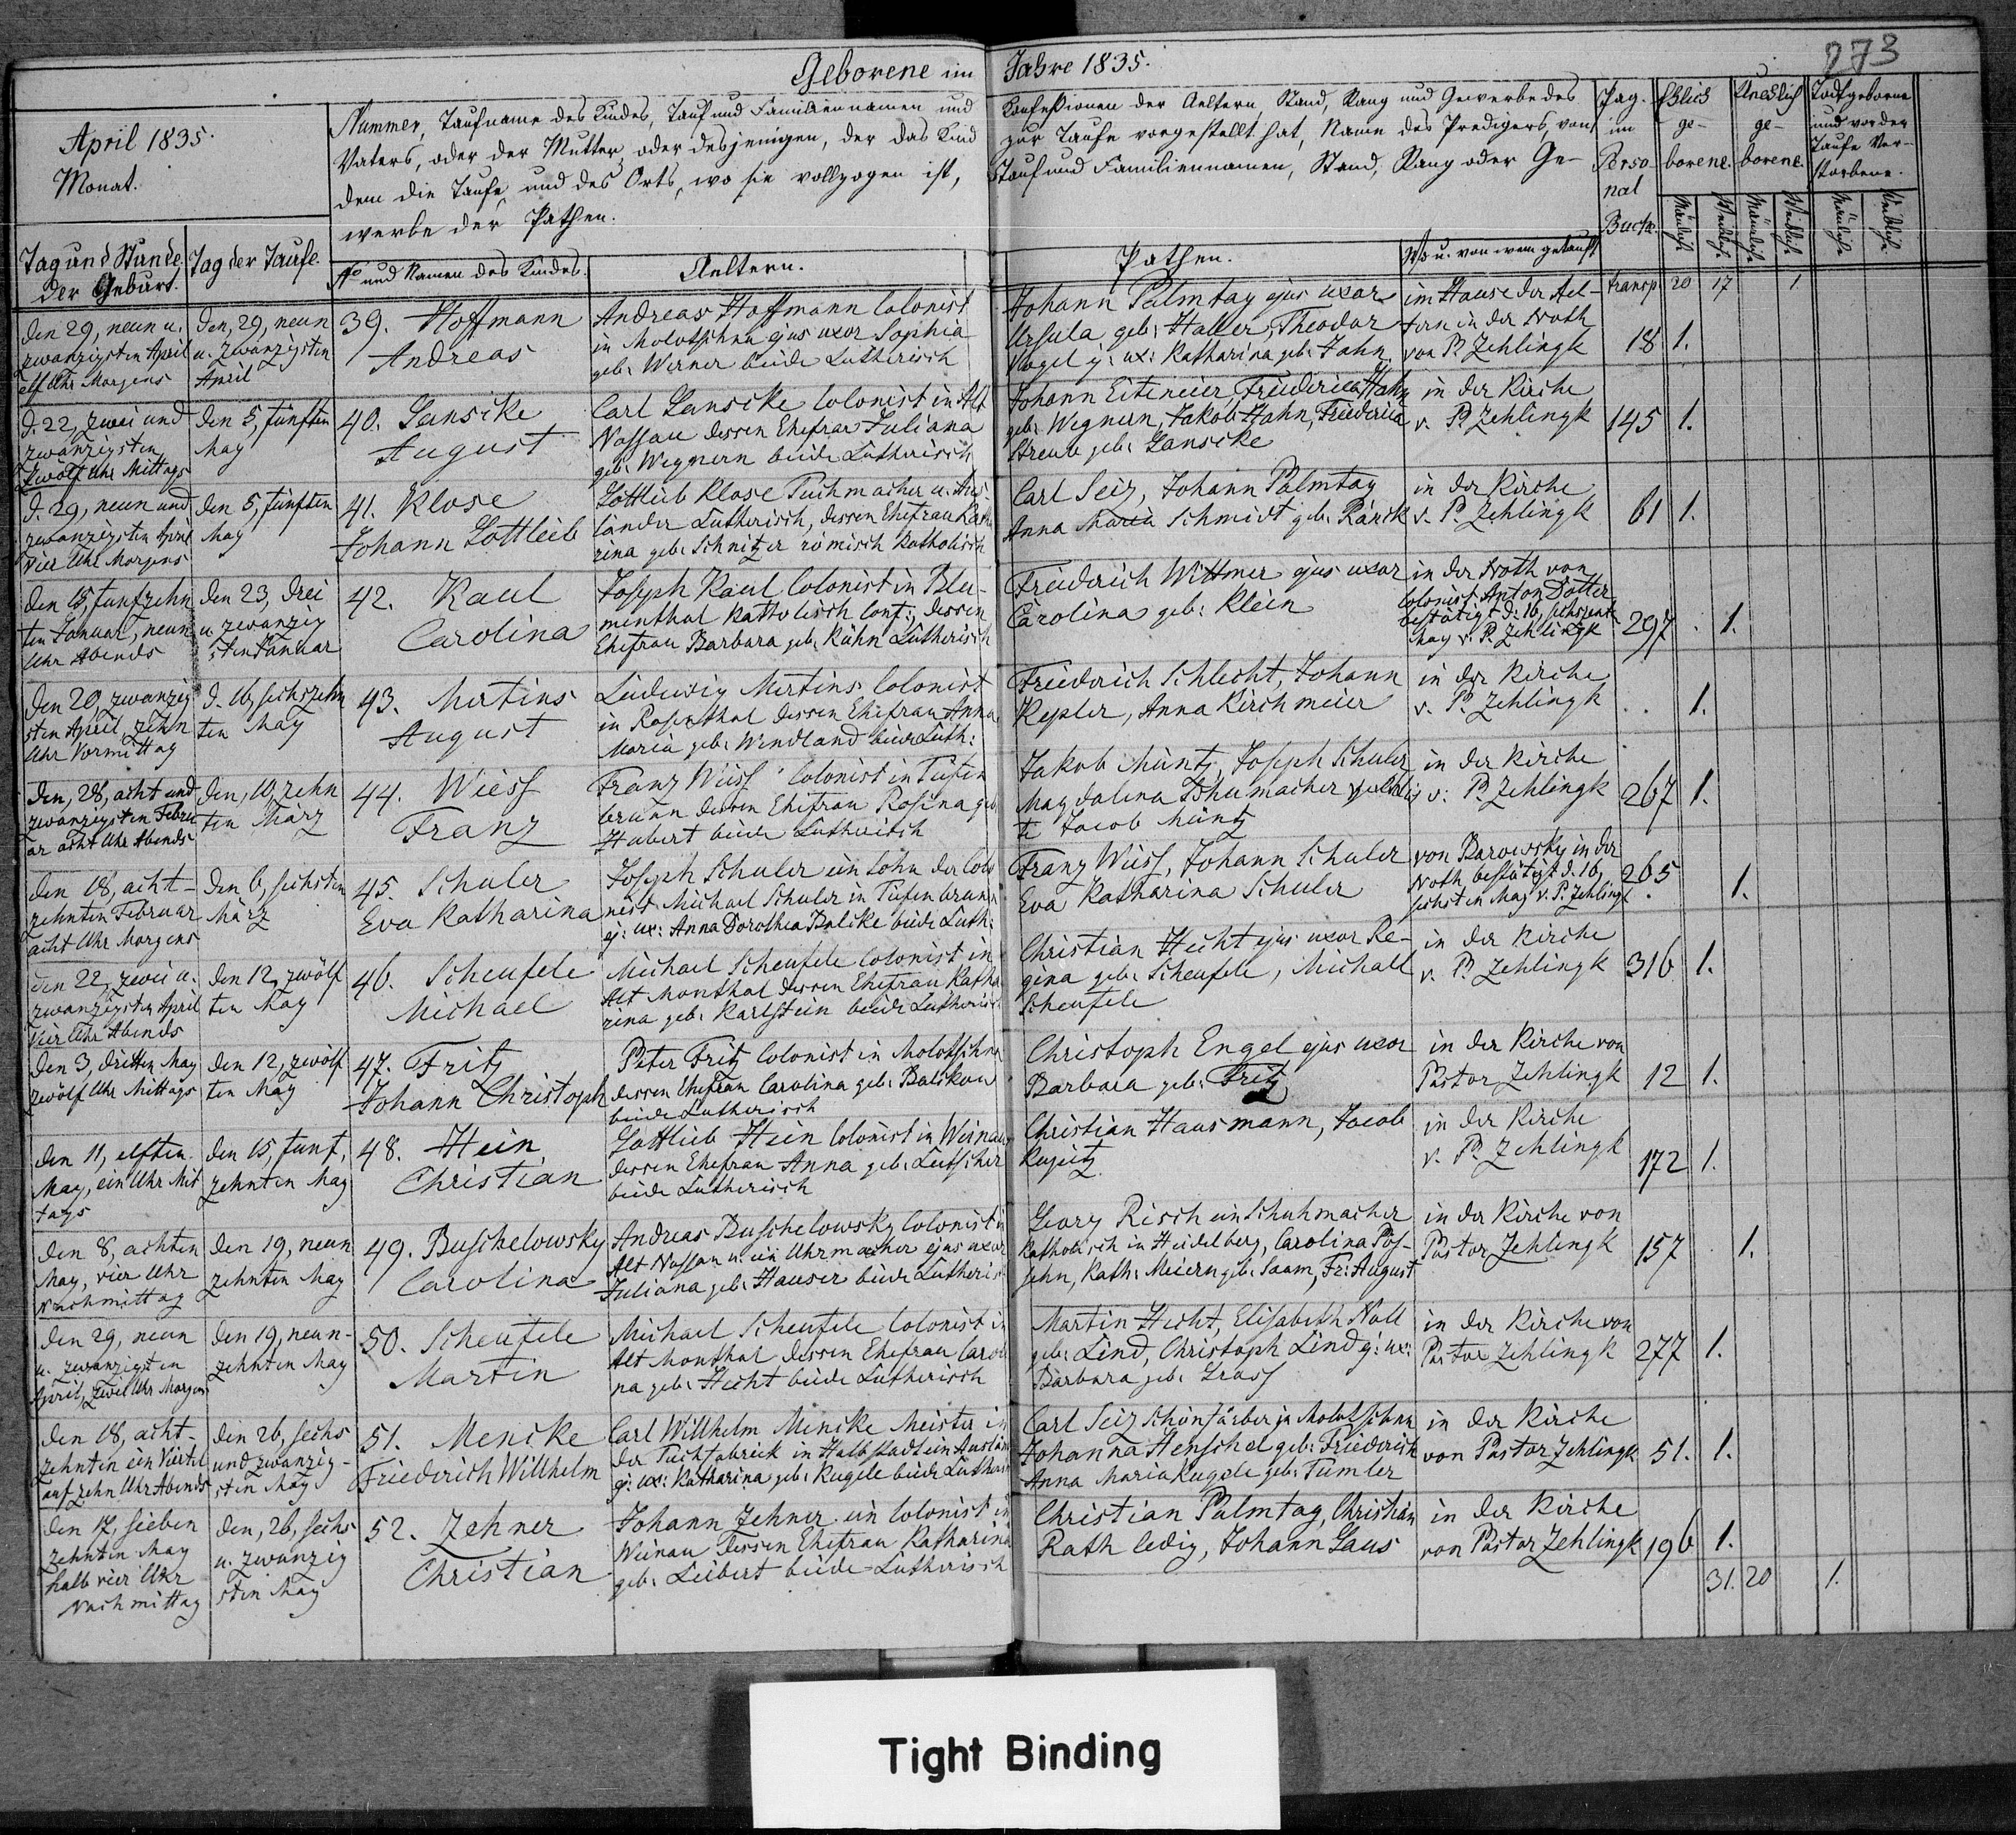 273
Geborene im Jahre 1835.
April 1835.
Monat.
Nummer, Taufname des Kindes, Tauf und Familiennamen und
Vaters, oder der Mutter, oder desjenigen, der das Kind
dem die Taufe, und des Orts, wo sie vollzogen ist,
werbe der Pathen.
Confessionen der Aeltern, Stand, Rang und Gewerbe des
zur Taufe vorgestellt hat, Name des Predigers, von
Tauf und Familiennamen, Stand, Rang oder Ge-
Pag.
im
Perso-
nal
Buch.
Ehlich
ge-
borene.
Unehlich
ge-
borene.
Todtgeborne
und vor der
Taufe Ver-
storbene.
Männlich
Weiblich
Männlich
Weiblich
Männlich
Weiblich
Tag und Stunde
der Geburt.
Tag der Taufe.
No und Namen des Kindes.
Aeltern.
Pathen.
Wo u. von wem getauft
transp. 20 17 1
den 29, neun u.
zwanzigsten April
elf Uhr Morgens
den, 29, neun
u. zwanzigsten
April
39. Hoffmann
Andreas
Andreas Hoffmann Colonist
in Molotschna ejus uxor Sophia
geb: Werner beide Lutherisch
Johann Palmtag ejus uxor
Ursula geb: Haller, Theodor
Vogel ej: ux: Katharina geb: Jahn
im Hause der Ael-
tern in der Noth
von P. Zehlingk
18 1.
d. 22, zwei und
zwanzigsten
Zwölf Uhr Mittags
den 5, fünften
May
40. Lanscke
August
Carl Lanscke Colonist in Alt
Nassau dessen Ehefrau Juliana
geb: Wegnern beide Lutherisch
Johann Eitereier, Friederica Hahn
geb: Wegnern, Jakob Hahn, Friederica
Streub geb: Lanscke
in der Kirche
v. P. Zehlingk
145 1.
d. 29, neun und
zwanzigsten April
Vier Uhr Morgens
den 5, fünften
May
41. Klose
Johann Gottlieb
Gottlieb Klose Tuchmacher u. Aus-
länder Lutherisch, dessen Ehefrau Katha
rina geb: Schnitzer römisch katholisch
Carl Seiz, Johann Palmtag
Anna Maria Schmidt geb: Rärick
in der Kirche
v. P. Zehlingk
61 1.
den 15, funfzehn
ten Januar, neun
Uhr Abends
den 23, drei
u. zwanzig
sten Januar
42. Raul
Carolina
Joseph Raul Colonist in Blu-
menthal Katholisch Conf:, dessen
Ehefrau Barbara geb: Kühn Lutherisch
Friederich Wittmer ejus uxor
Carolina geb: Klein
in der Noth von
Colonist Anton Dotter
bestätigt d: 16, sechszent
May v. P. Zehlingk
297 1.
den 20, zwanzig
sten April, zehn
Uhr Vormittag
d. 16, sechszehn
ten May
43. Mertins
August
Ludewig Mertins Colonist
in Rosenthal dessen Ehefrau Anna
Maria geb: Wendland beide Luth:
Friederich Schlecht, Johann
Kepler, Anna Kirchmeier
in der Kirche
v. P. Zehlingk
1.
den, 28, acht und
zwanzigsten Febru
ar acht Uhr Abends
den, 10, zehn
ten März
44. Wiess
Franz
Franz Wiess Colonist in Tiefen
brunn dessen Ehefrau Rosina geb
Hubert beide Lutherisch
Jakob Müntz, Joseph Schuler
Magdalena Schumacher
Jacob Müntz
in der Kirche
v: P. Zehlingk
267 1.
den 18, acht-
zehnten Februar
acht Uhr Morgens
den 6, sechsten
März
45. Schuler
Eva Katharina
Joseph Schuler ein Sohn der Colo
nist Michael Schuler in Tiefenbrunn
ej: ux: Anna Dorothea Balske beide Luth:
Franz Wiess, Johann Schuler
Eva Katharina Schuler
von Barowsky in der
Noth bestätigt d. 16,
sechsten May v. P. Zehlingk
265 1.
den 22, zwei u.
zwanzigsten April
Vier Uhr Abends
den 12, zwölf
ten May
46. Scheufele
Michael
Michael Scheufele Colonist in
Alt Monthal dessen Ehefrau Katha
rina geb: Karlstein beide Lutherisch
Christian Hecht ejus uxor Re-
gina geb: Scheufele, Michael
Scheufele
in der Kirche
v. P. Zehlingk
316 1.
den 3, dritten May
zwölf Uhr Mittags
den 12, zwölf
ten May
47. Fritz
Johann Christoph
Peter Fritz Colonist in Molotschna
dessen Ehefrau Carolina geb: Balikow
beide Lutherisch
Christoph Engel ejus uxor
Barbara geb: Fritz
in der Kirche von
Pastor Zehlingk
12 1.
den 11, elften
May, ein Uhr Mit
tags
den 15, funf,
zehnten May
48. Hein
Christian
Gottlieb Hein Colonist in Weinau
dessen Ehefrau Anna geb: Lutscher
beide Lutherisch
Christian Hausmann, Jacob
Kujutz
in der Kirche
v. P. Zehlingk
172 1.
den 8, achten
May, vier Uhr
Nachmittag
den 19, neun
zehnten May
49. Buschelowsky
Carolina
Andreas Buschelowsky Colonist in
Alt Nassau u. ein Uhrmacher ejus uxor
Juliana geb: Hauser beide Lutheris
Georg Risch ein Schuhmacher
Katholisch in Heidelberg, Carolina Pös-
sehn, Kath: Meiern geb: Saam, Fr: August
in der Kirche von
Pastor Zehlingk
157 1.
den 29, neun
u. zwanzigsten
April, zwei Uhr Morgens
den 19, neun-
zehnten May
50. Scheufele
Martin
Michael Scheufele Colonist in
Alt Monthal dessen Ehefrau Caroli
na geb: Hecht beide Lutherisch
Martin Hecht, Elisabeth Noll
geb: Lind, Christoph Lind ej: ux:
Barbara geb: Grass
in der Kirche von
Pastor Zehlingk
277 1.
den 18, acht-
zehnten ein Viertel
auf zehn Uhr Abends
den 26, sechs
und zwanzig-
sten May
51. Mencke
Friederich Willhelm
Carl Willhelm Mencke Meister in
der Tuchfabrick in Halbstadt ein Auslän
ej: ux: Katharina geb: Kugele beide Lutheris
Carl Seiz Schönfärber in Molotschna
Johanna Henschel geb: Friederich
Anna Maria Kugele geb: Tumler
in der Kirche
von Pastor Zehlingk
51. 1.
den 17, sieben
zehnten May
halb vier Uhr
Nachmittag
den, 26, sechs
u. zwanzig
sten May
52. Zehner
Christian
Johann Zehner ein Colonist in
Weinau dessen Ehefrau Katharina
geb: Leibert beide Lutherisch
Christian Palmtag, Christian
Rath ledig, Johann Laus
in der Kirche
von Pastor Zehlingk
196 1.
31. 20 1.
Tight Binding